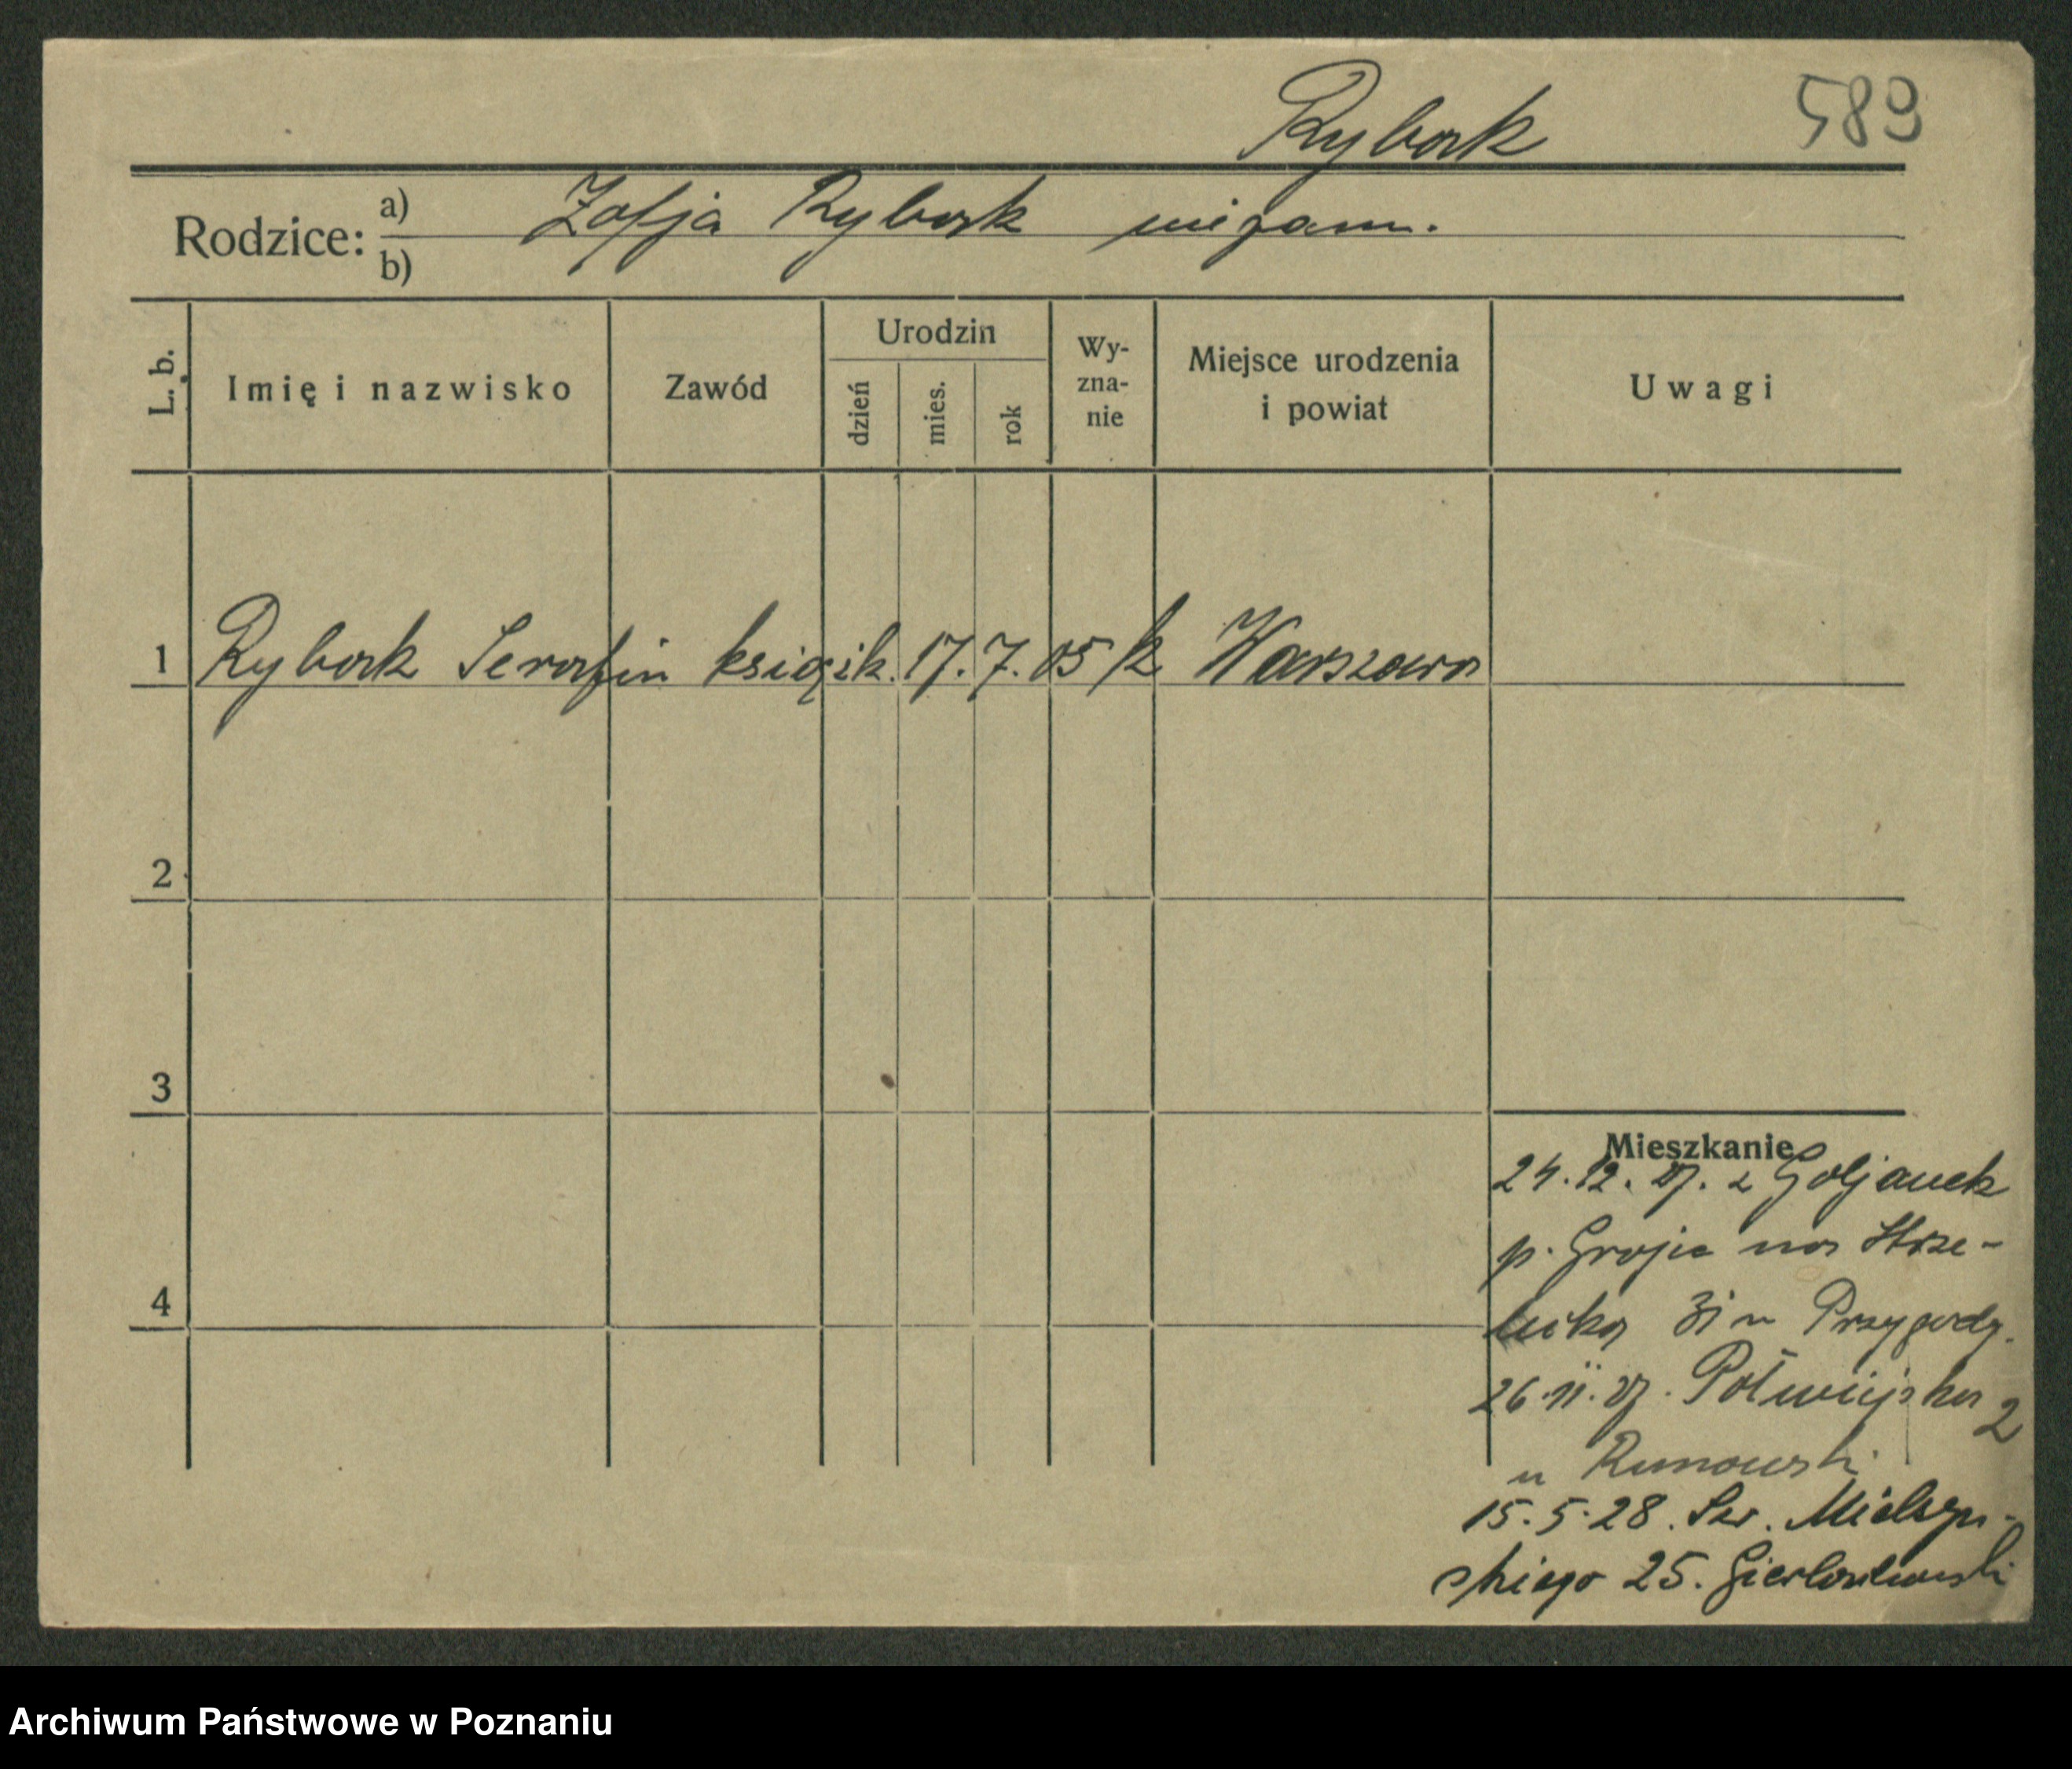 Rybak
589
Rodzice: a) Zofja Rybak niezam.
b)
L. b.
Imię i nazwisko
Zawód
Urodzin
dzień
mies.
rok
Wy-
zna-
nie
Miejsce urodzenia
i powiat
Uwagi
1 Rybak Serafin księżik. 17. 7. 05 k Warszawa
2
3
4
Mieszkanie
24. 12. 27. z Goljanek
p. Grojec na Strze-
lecką 31 u Przygody.
26. 11. 27. Półwiejska 2
u Runowski
15. 5. 28. Sew. Mielżyń-
skiego 25.
Archiwum Państwowe w Poznaniu